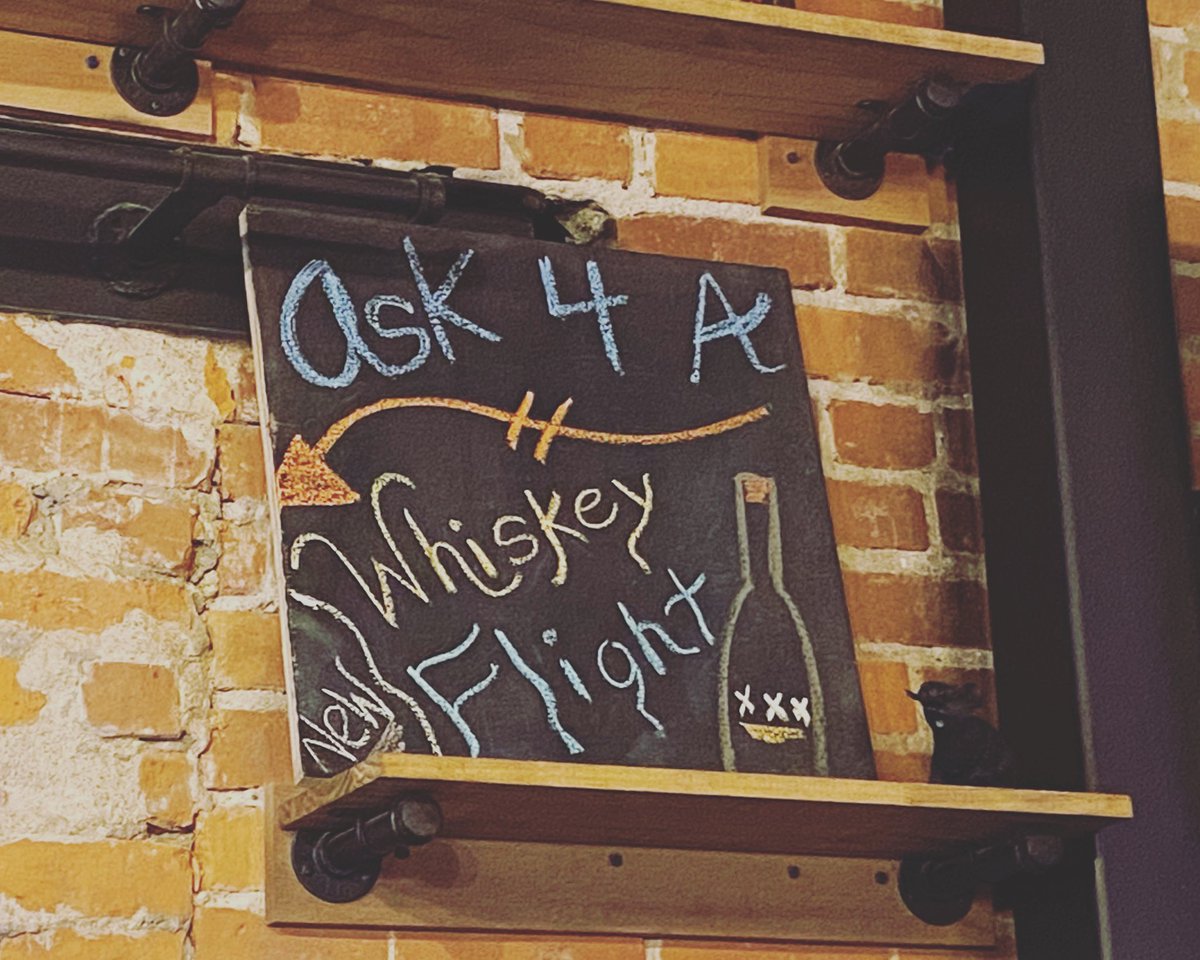 ask 4 A
Whiskey
Flight
New
xxx